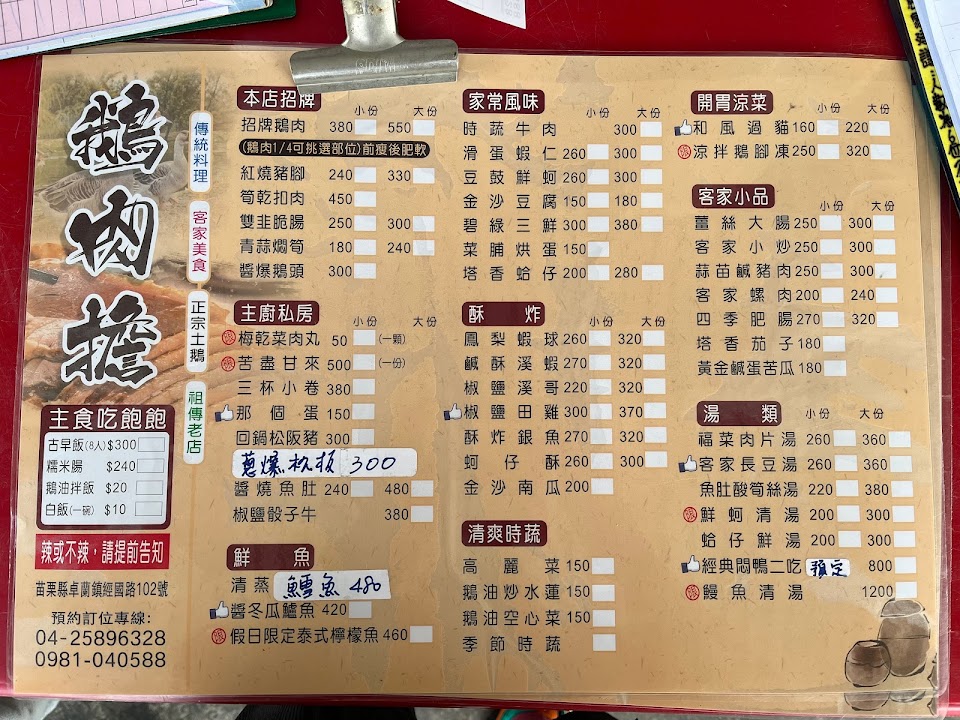 鵝肉擔
傳統料理
客家美食
正宗土鵝
祖傳老店
主食吃飽飽
古早飯(8人)$300
糯米腸 $240
鵝油拌飯 $20
白飯(一碗) $10
辣或不辣，請提前告知
苗栗縣卓蘭鎮經國路102號
預約訂位專線:
04-25896328
0981-040588
本店招牌 小份 大份
招牌鵝肉 380 550
(鵝肉1/4可挑選部位)前瘦後肥軟
紅燒豬腳 240 330
筍乾扣肉 450
雙韭脆腸 250 300
青蒜燜筍 180 240
醬爆鵝頭 300
主廚私房 小份 大份
梅乾菜肉丸 50 (一顆)
苦盡甘來 500 (一份)
三杯小卷 380
那個蛋 150
回鍋松阪豬 300
蔥爆松板 300
醬燒魚肚 240 480
椒鹽骰子牛 380
鮮魚 小份 大份
清蒸 鱈魚 480
醬冬瓜鱸魚 420
假日限定泰式檸檬魚 460
家常風味 小份 大份
時蔬牛肉 300
滑蛋蝦仁 260 300
豆鼓鮮蚵 260 300
金沙豆腐 150 180
碧綠三鮮 300 380
菜脯烘蛋 150
塔香蛤仔 200 280
酥炸 小份 大份
鳳梨蝦球 260 320
鹹酥溪蝦 270 320
椒鹽溪哥 220 320
椒鹽田雞 300 370
酥炸銀魚 270 320
蚵仔酥 260 300
金沙南瓜 200
清爽時蔬
高麗菜 150
鵝油炒水蓮 150
鵝油空心菜 150
季節時蔬
開胃涼菜 小份 大份
和風過貓 160 220
涼拌鵝腳凍 250 320
客家小品 小份 大份
薑絲大腸 250 300
客家小炒 250 300
蒜苗鹹豬肉 250 300
客家螺肉 200 240
四季肥腸 270 320
塔香茄子 180
黃金鹹蛋苦瓜 180
湯類 小份 大份
福菜肉片湯 260 360
客家長豆湯 260 360
魚肚酸筍絲湯 220 380
鮮蚵清湯 200 300
蛤仔鮮湯 200 300
經典悶鴨二吃 預定 800
鰻魚清湯 1200